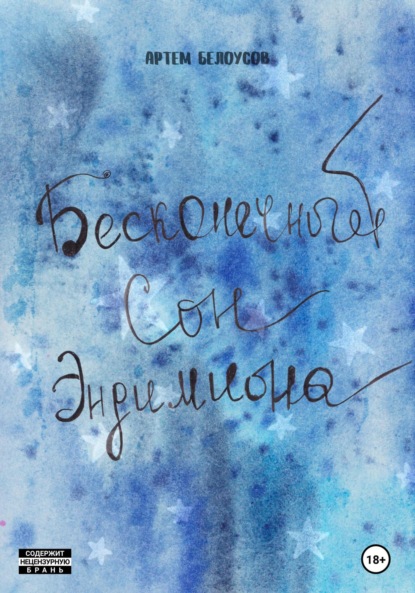 АРТЕМ БЕЛОУСОВ
Бесконечный
Сон
Эндимиона
СОДЕРЖИТ
НЕЦЕНЗУРНУЮ
БРАНЬ
18+